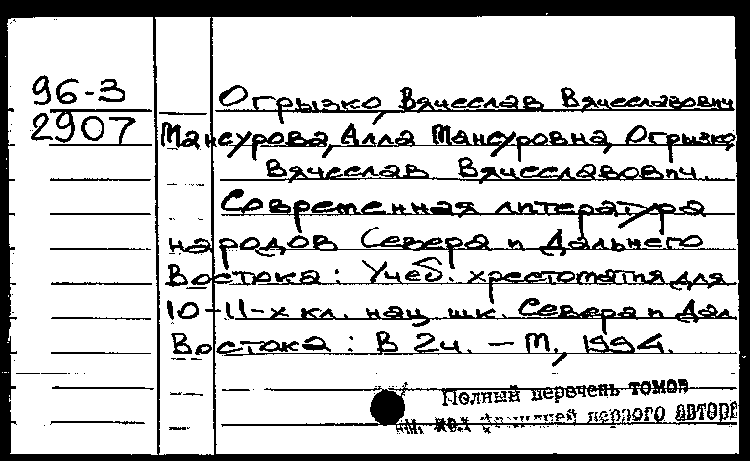 96-3
2907
Огрызко, Вячеслав Вячеславович
Мансурова, Алла Мансуровна, Огрызко,
Вячеслав Вячеславович.
Современная литература
народов Севера и Дальнего
Востока: Учеб. хрестоматия для
10-11-х кл. нац. шк. Севера и Дал.
Востока: В 2ч. - М., 1994.
Полный перечень томов
см. под фамилией первого автора